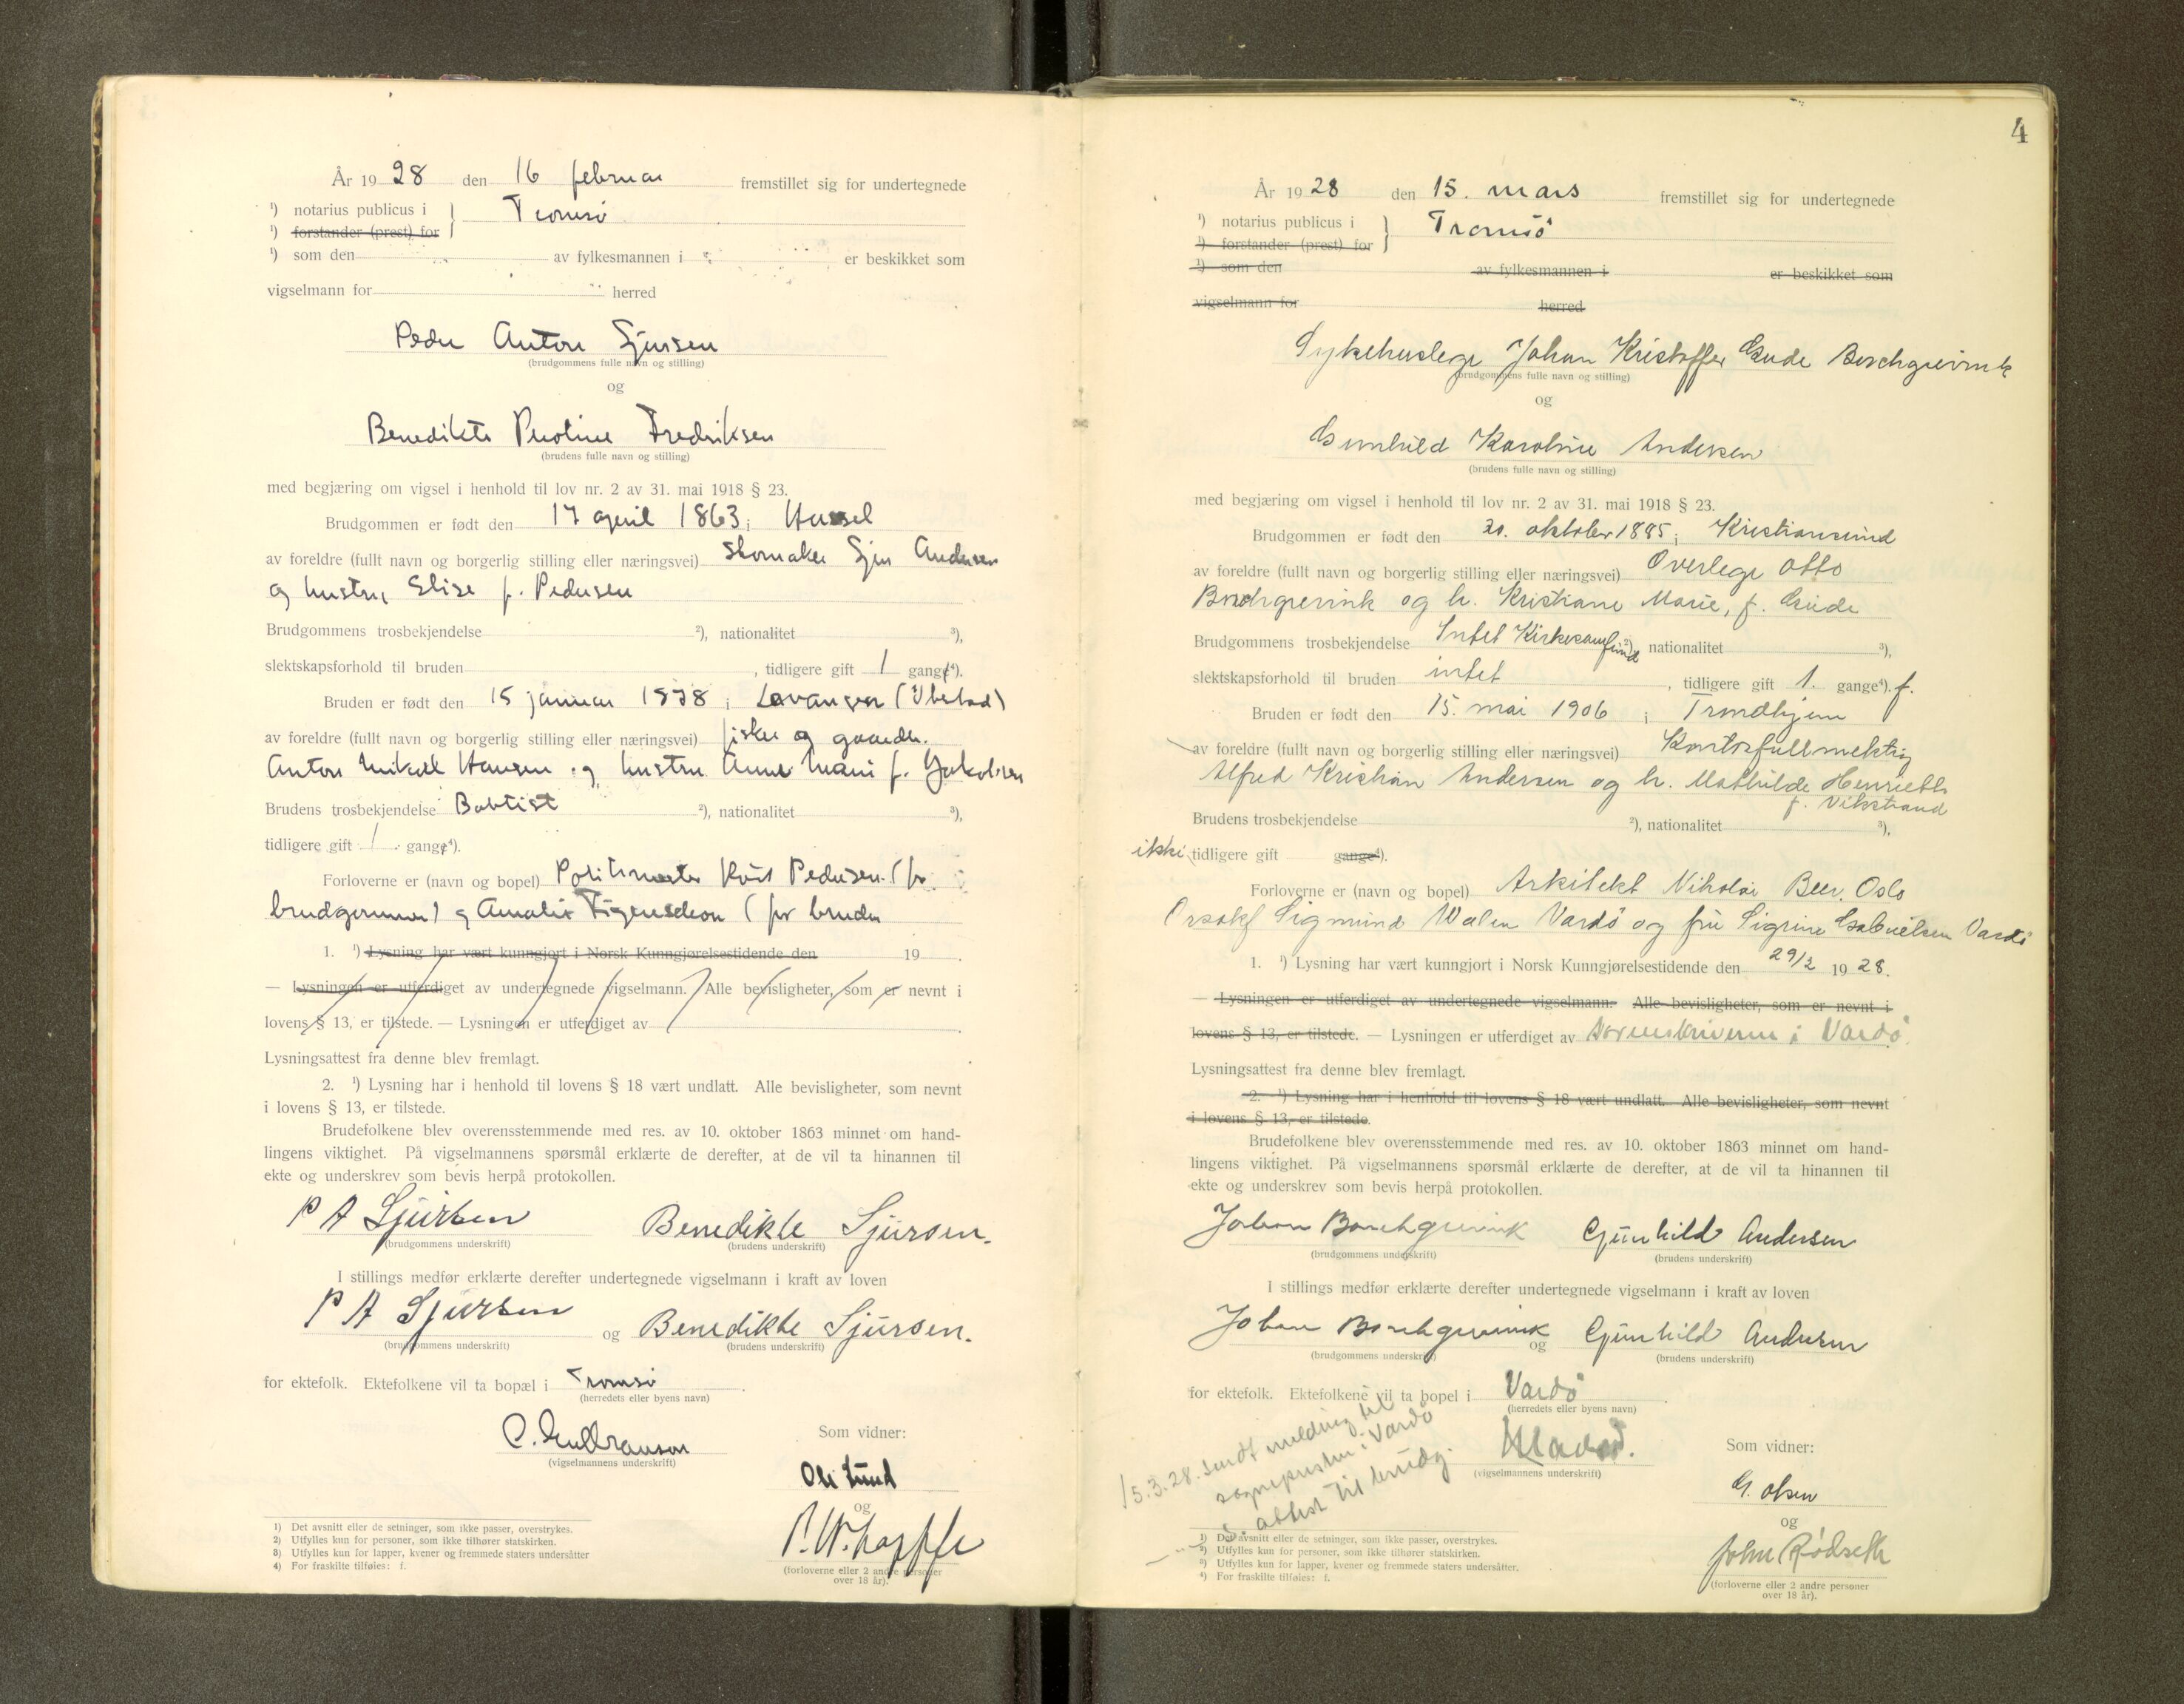 År 1928 den 16 februar fremstillet sig for undertegnede
¹) notarius publicus i } Tromsø
¹) forstander (prest) for
¹) som den av fylkesmannen i er beskikket som
vigselmann for herred
Peder Anton Sjursen
(brudgommens fulle navn og stilling)
og
Benedikte Peroline Fredriksen
(brudens fulle navn og stilling)
med begjæring om vigsel i henhold til lov nr. 2 av 31. mai 1918 § 23.
Brudgommen er født den 17 april 1863 i Hassel
av foreldre (fullt navn og borgerlig stilling eller næringsvei) skomaker Sjur Andersen
og hustru Elise f. Pedersen
Brudgommens trosbekjendelse ²), nationalitet ³),
slektskapsforhold til bruden , tidligere gift 1 gang⁴).
Bruden er født den 15 januar 1878 i Lavangen (Ibestad)
av foreldre (fullt navn og borgerlig stilling eller næringsvei) fisker og gaardbr.
Anton Mikal Hansen og hustru Anne Marie f. Jakobsen
Brudens trosbekjendelse Babtist ²), nationalitet ³),
tidligere gift 1 gang⁴).
Forloverne er (navn og bopel) Politimester Pedersen (for
brudgommen) og Amalie (for bruden
1. ¹) Lysning har vært kunngjort i Norsk Kunngjørelsestidende den 19 .
— Lysningen er utferdiget av undertegnede vigselmann. Alle bevisligheter, som er nevnt i
lovens § 13, er tilstede. — Lysningen er utferdiget av .
Lysningsattest fra denne blev fremlagt.
2. ¹) Lysning har i henhold til lovens § 18 vært undlatt. Alle bevisligheter, som nevnt
i lovens § 13, er tilstede.
Brudefolkene blev overensstemmende med res. av 10. oktober 1863 minnet om hand-
lingens viktighet. På vigselmannens spørsmål erklærte de derefter, at de vil ta hinannen til
ekte og underskrev som bevis herpå protokollen.
P A Sjursen Benedikte Sjursen.
(brudgommens underskrift) (brudens underskrift)
I stillings medfør erklærte derefter undertegnede vigselmann i kraft av loven
P A Sjursen og Benedikte Sjursen.
(brudgommens underskrift) (brudens underskrift)
for ektefolk. Ektefolkene vil ta bopæl i Tromsø .
(herredets eller byens navn)
C. Gulbranson
(vigselmannens underskrift)
Som vidner:
Ole Lund
og
(forloverne eller 2 andre personer
over 18 år).
1) Det avsnitt eller de setninger, som ikke passer, overstrykes.
2) Utfylles kun for personer, som ikke tilhører statskirken.
3) Utfylles kun for lapper, kvener og fremmede staters undersåtter
4) For fraskilte tilføies: f.
4
År 1928 den 15. mars fremstillet sig for undertegnede
¹) notarius publicus i } Tromsö
¹) forstander (prest) for
¹) som den av fylkesmannen i er beskikket som
vigselmann for herred
Sykehuslege Johan Kristoffer Gude Borchgrevink
(brudgommens fulle navn og stilling)
og
Gunhild Karoline Andersen
(brudens fulle navn og stilling)
med begjæring om vigsel i henhold til lov nr. 2 av 31. mai 1918 § 23.
Brudgommen er født den 20. oktober 1895 i Kristiansund
av foreldre (fullt navn og borgerlig stilling eller næringsvei) Overlege Otto
Borchgrevink og h. Kristiane Marie, f. Gude
Brudgommens trosbekjendelse Intet Kirkesamfund ²), nationalitet ³),
slektskapsforhold til bruden intet , tidligere gift 1. gange⁴). f.
Bruden er født den 15. mai 1906 i Trondhjem
av foreldre (fullt navn og borgerlig stilling eller næringsvei) Kontorfullmektig
Alfred Kristian Andersen og h. Mathilde Henriette
f. Vikstrand
Brudens trosbekjendelse ²), nationalitet ³),
ikke tidligere gift gange⁴).
Forloverne er (navn og bopel) Arkitekt Nikolai Beer, Oslo
Orsakf Sigmund Walen Vardö og fru Sigrine Gabrielsen Vardö
1. ¹) Lysning har vært kunngjort i Norsk Kunngjørelsestidende den 29/2 1928.
— Lysningen er utferdiget av undertegnede vigselmann. Alle bevisligheter, som er nevnt i
lovens § 13, er tilstede. — Lysningen er utferdiget av sorenskriveren i Vardö.
Lysningsattest fra denne blev fremlagt.
2. ¹) Lysning har i henhold til lovens § 18 vært undlatt. Alle bevisligheter, som nevnt
i lovens § 13, er tilstede.
Brudefolkene blev overensstemmende med res. av 10. oktober 1863 minnet om hand-
lingens viktighet. På vigselmannens spørsmål erklærte de derefter, at de vil ta hinannen til
ekte og underskrev som bevis herpå protokollen.
Johan Borchgrevink Gunhild Andersen
(brudgommens underskrift) (brudens underskrift)
I stillings medfør erklærte derefter undertegnede vigselmann i kraft av loven
Johan Borchgrevink og Gunhild Andersen
(brudgommens underskrift) (brudens underskrift)
for ektefolk. Ektefolkene vil ta bopel i Vardö .
(herredets eller byens navn)
15.3.28. sendt melding til
sogneprsten i Vardö
attest til brudg.
(vigselmannens underskrift)
Som vidner:
G. Olsen
og
John Rødseth
(forloverne eller 2 andre personer
over 18 år).
¹) Det avsnitt eller de setninger, som ikke passer, overstrykes.
²) Utfylles kun for personer, som ikke tilhører statskirken.
³) Utfylles kun for lapper, kvener og fremmede staters undersåtter.
⁴) For fraskilte tilføies: f.